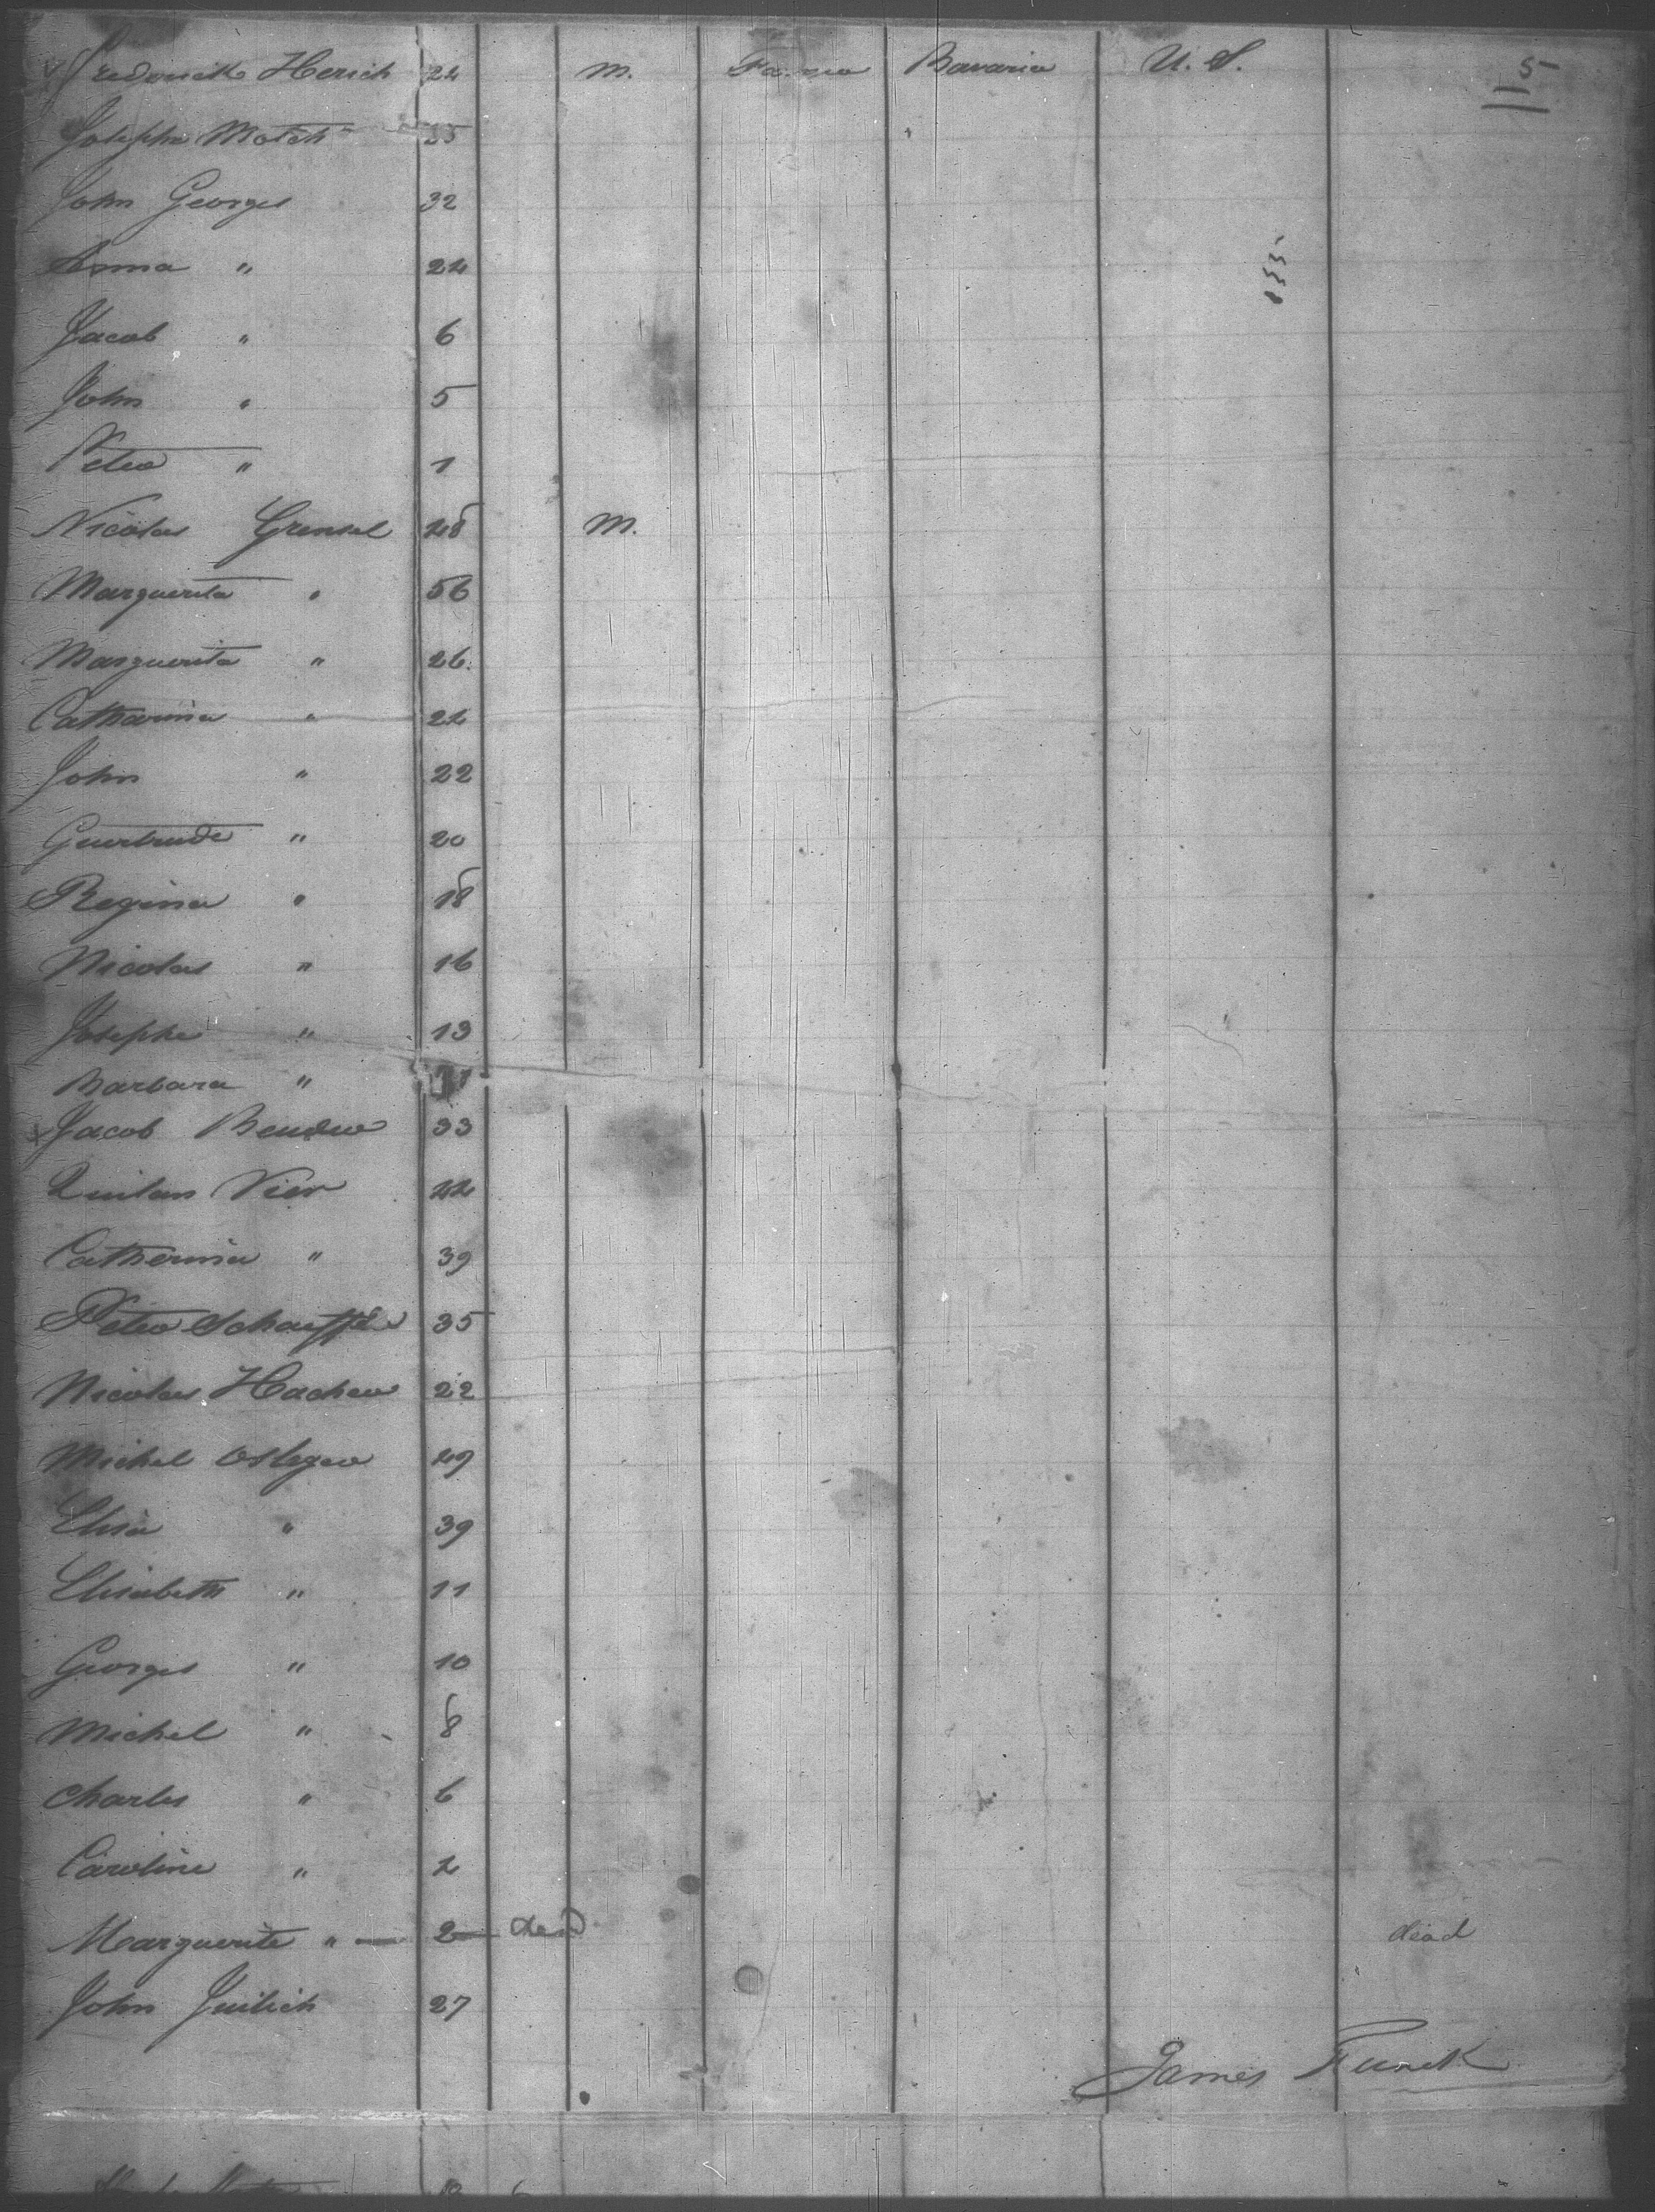 Frederick Herich 24 m. Farmer Bavaria U. S. 5
Joseph Motch 35
John Georges 32
Anna " 24
Jacob " 6
John " 5
Peter " 1
Nicolas Grensel 48 m.
Marguerita " 56
Marguerita " 26
Catharina " 24
John " 22
Guertrude " 20
Regina " 18
Nicolas " 16
Josephe " 13
Barbara "
Jacob Bender 33
Vier 44
Catherina " 39
Peter Schaeffer 35
Nicolas Hacher 22
Michel Osleger 49
Elisa " 39
Elisabeth " 11
Georges " 10
Michel " 8
Charles " 6
Caroline " 4
Marguerite " — 2 — dead dead
John Juilich 27
James Funck